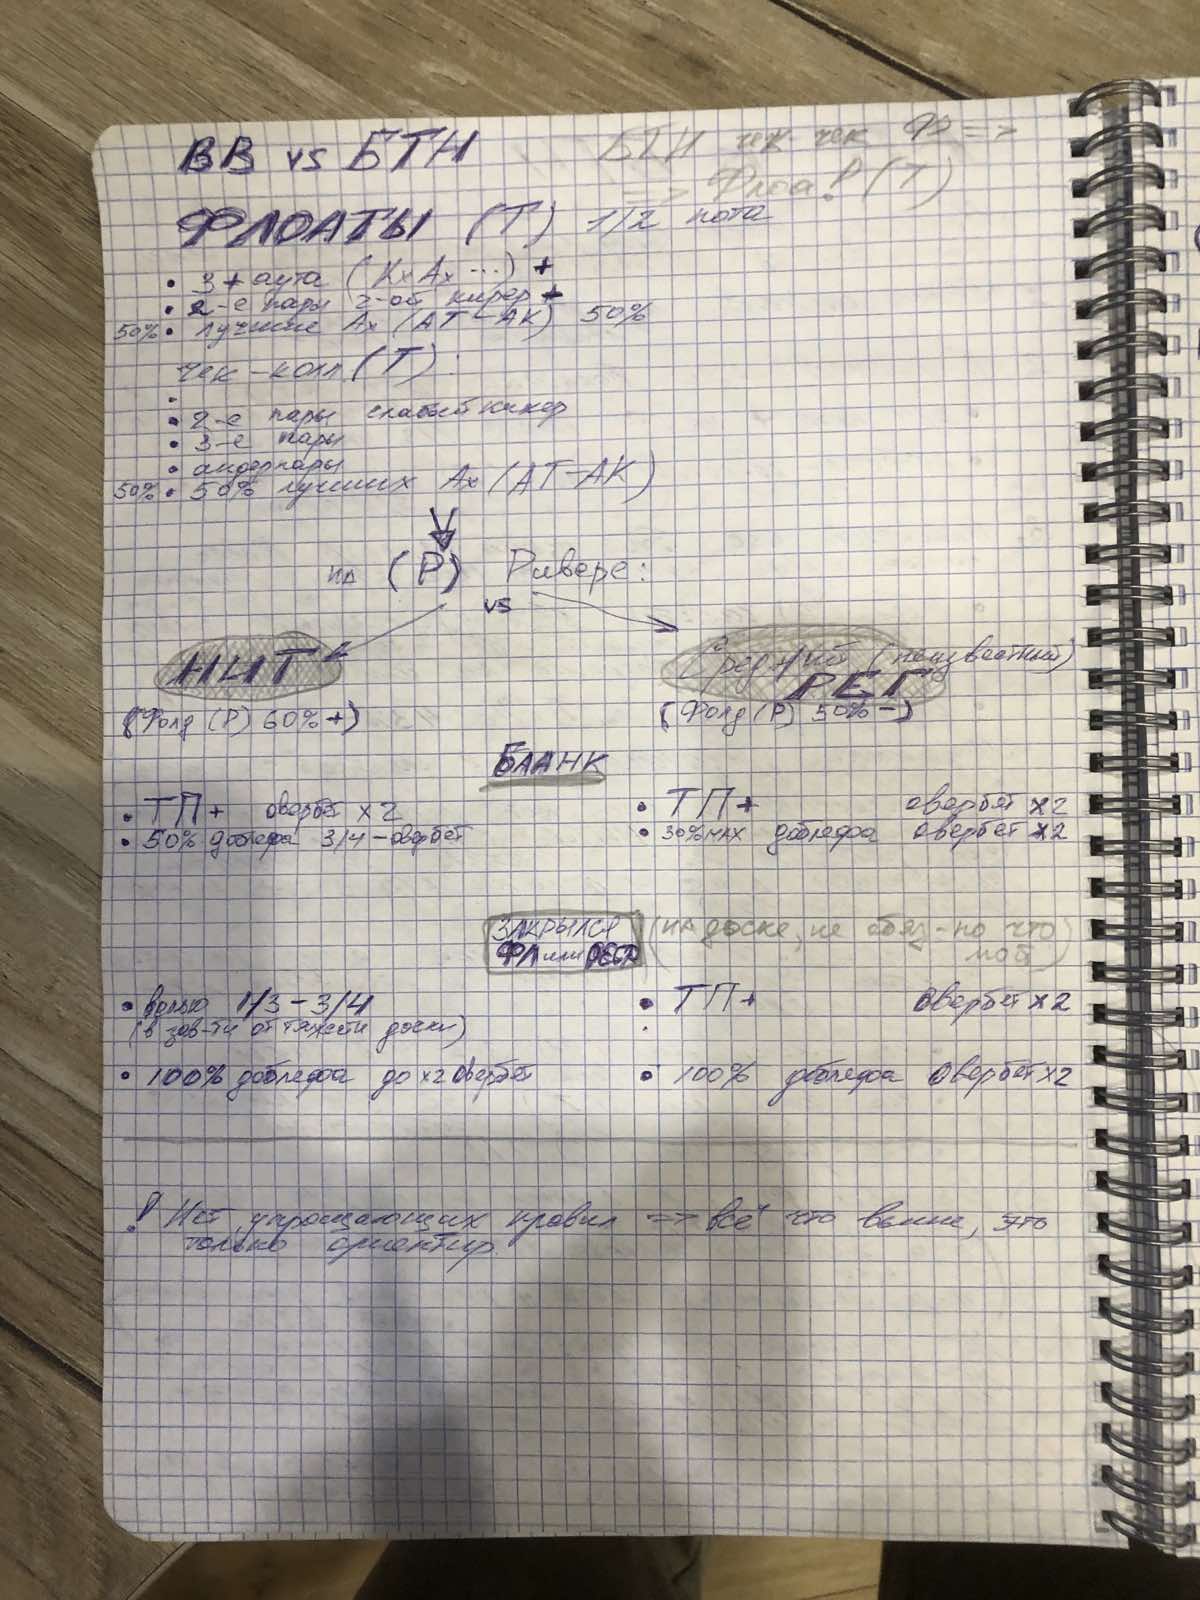 ВВ vs БТН
БТН чек чек Ф =>
=> Флоат! (Т)
ФЛОАТЫ (Т) 1/2 пота
• 3+ аута (Kx Ax ...) +
• 2-е пары 2-ой кикер +
50% • лучшие Ax (АТ-АК) 50%
чек-колл (Т):
• 2-е пары слабый кикер
• 3-е пары
• андерпары
50% • 50% лучших Ax (АТ-АК)
на (Р) Ривере:
vs
НИТ
Средний (неизвестный)
РЕГ
(Фолд (Р) 60%+)
(Фолд (Р) 50%-)
БЛАНК
• ТП+ овербет x2
• ТП+ овербет x2
• 50% добледфа 3/4-овербет
• 30% max добледфа овербет x2
ЗАКРЫЛСЯ
ФЛ или
(на доске, не обяз-но что
мой)
• Вэлью 1/3 - 3/4
• ТП+ овербет x2
(в зав-ти от тяжести доски)
• 100% добледфа до x2 овербет
• 100% добледфа овербет x2
! Нет упрощающих правил => всё что выше, это
только ориентир